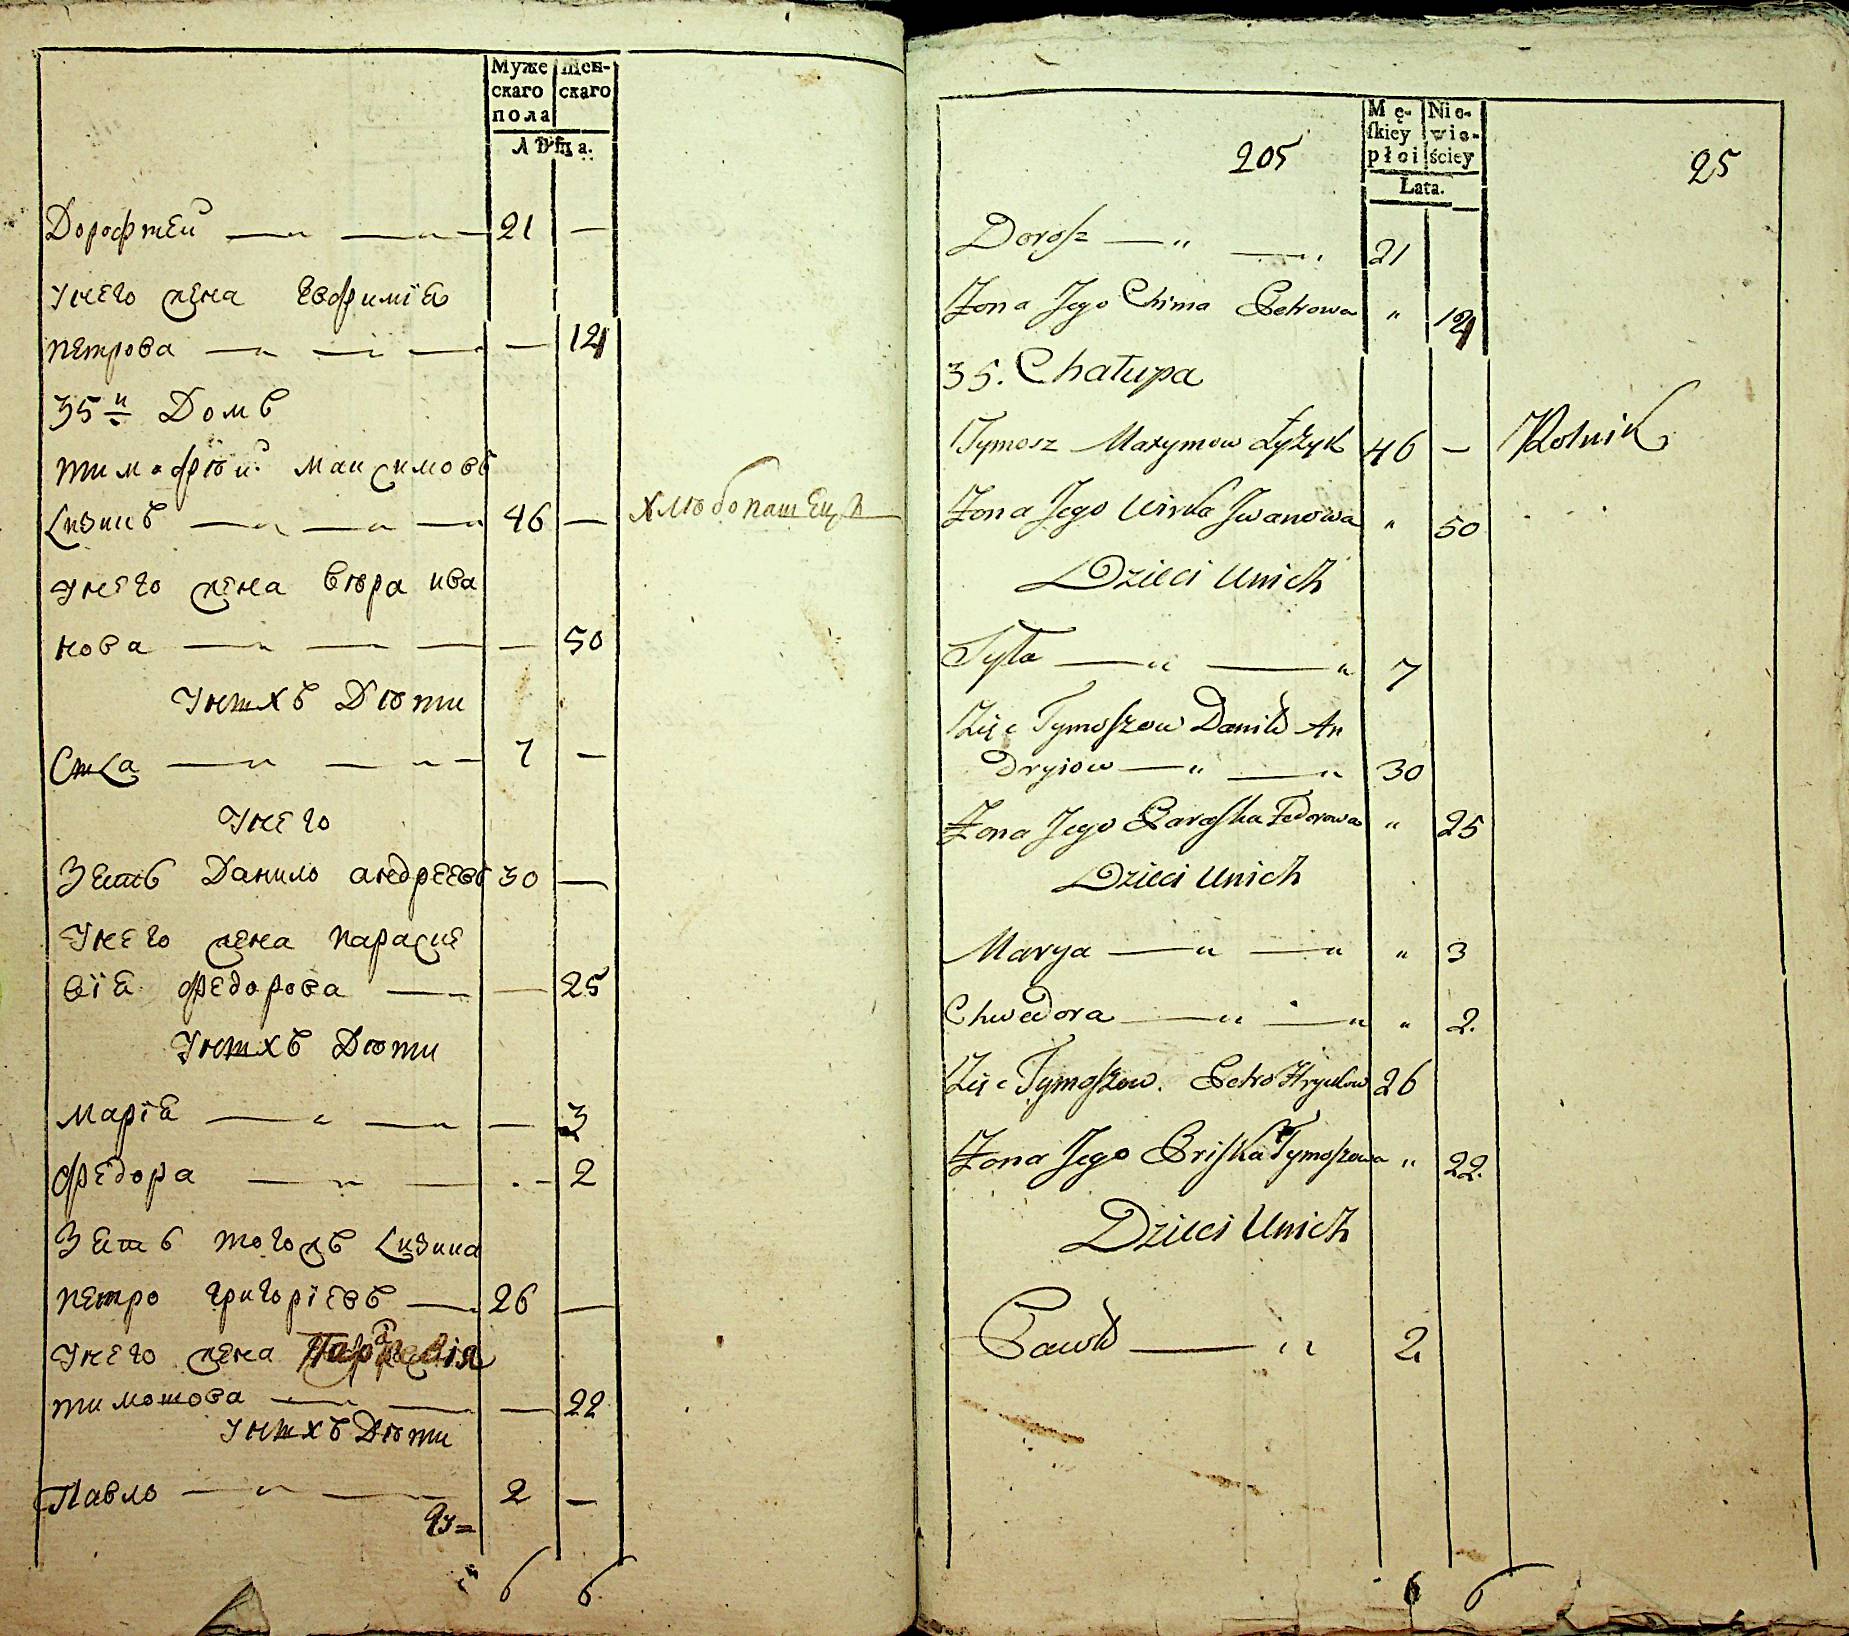 Муже
скаго
пола
жен-
скаго
лѣта.
Дорофтей 21 —
Унего жена Евфимія
петрова — 121
35й Домъ
тимофѣй максимовъ
Лизикъ 46 — хлѣбопашецъ
унего жена вѣра ива
нова — 50
Унихъ Дѣти
7 —
Унего
Зеть Данило андреевъ 30 —
Унего жена параске
вія федорова — 25
Унихъ Дѣти
марія — 3
федора — 2
Зеть тогожъ Лизика
петро григоріевъ 26 —
унего жена
тимошова — 22
унихъ Дѣти
Павло 2 —
6 6
205
Mę-
skiey
płci
Nie-
wie-
ściey
Łata.
25
Dorosz — " — " 21
Żona Jego Chima Petrowa "
35. Chałupa
Tymosz Maxymow Łyżyk 46 — Rolnik
Żona Jego Wirka Jwanowa " 50
Dzieci Unich
Syła — " — " 7
Zięć Tymoszow Daniło An
dryiow — " — " 30
Żona Jego Paraska Fedorowa " 25
Dzieci Unich
Marya — " — " " 3
Chwedora — " — " " 2.
Zięć Tymoszow. Petro Hryciow 26
Żona Jego Priska Tymoszowa " 22.
Dzieci Unich
Pawło — " 2
6 6